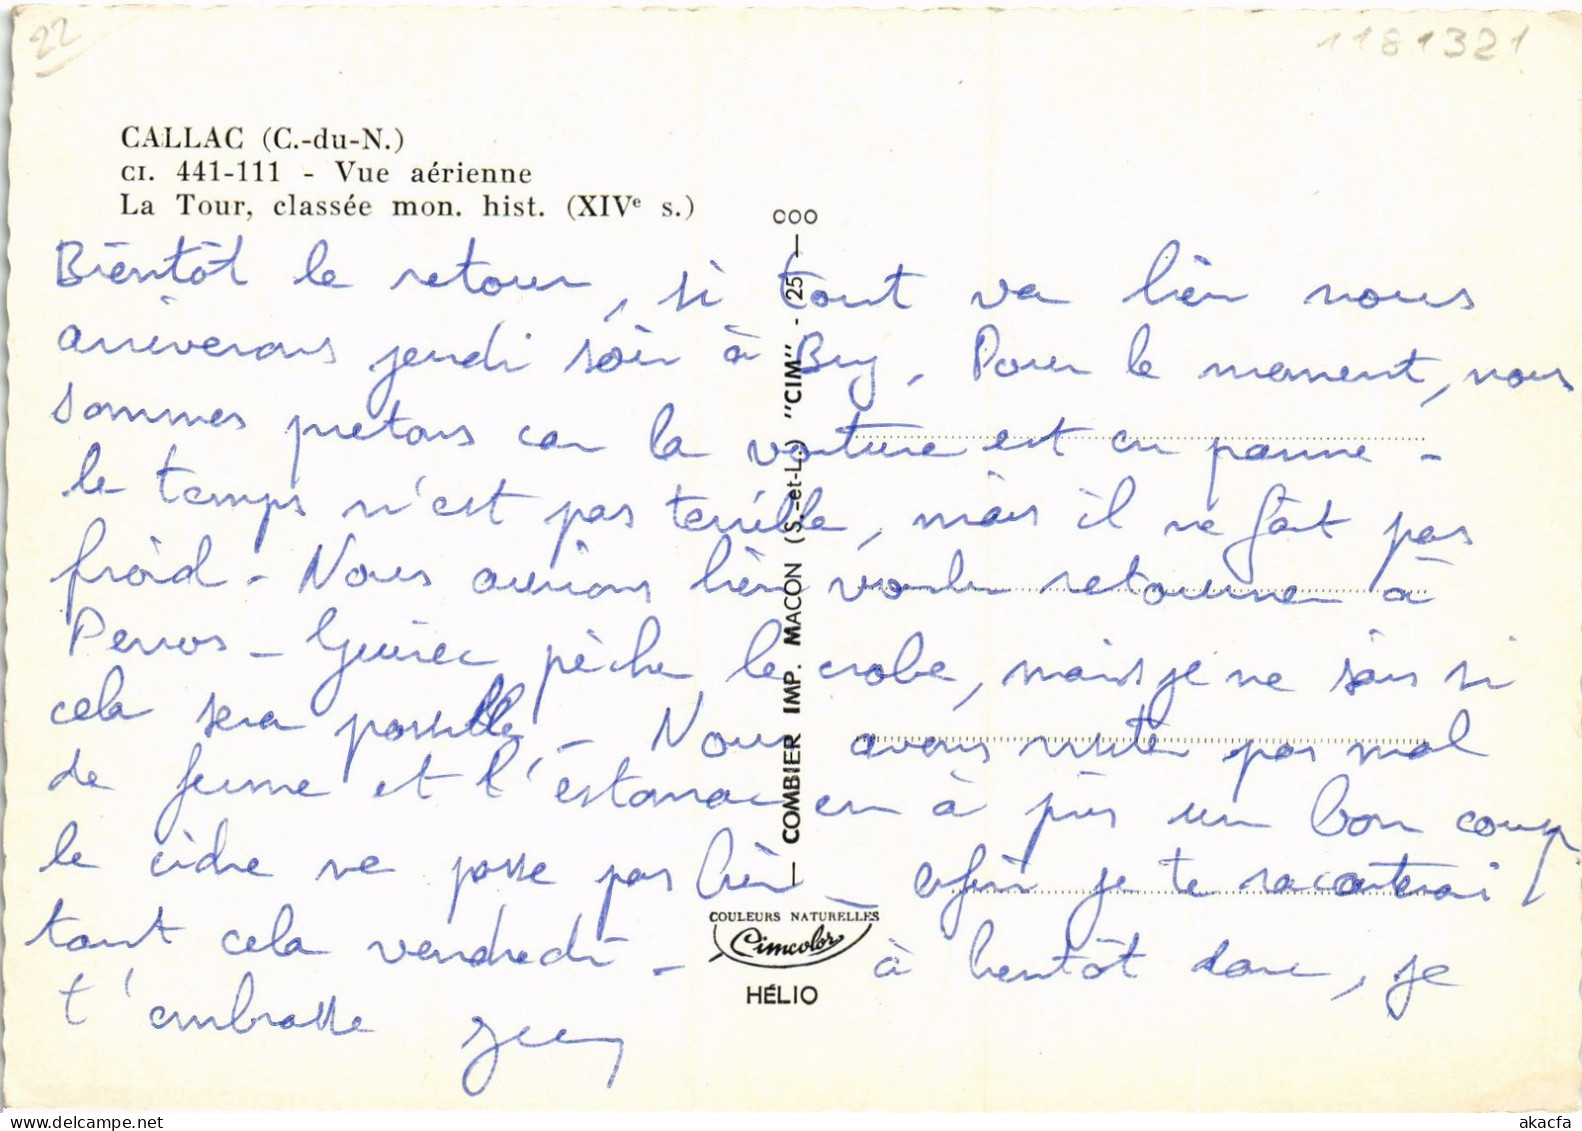 22
1181321
CALLAC (C.-du-N.)
CI. 441-111 - Vue aérienne
La Tour, classée mon. hist. (XIVe s.)
Bientôt le retour, si tout va bien nous
arriverons jeudi soir à Bry. Pour le moment, nous
sommes pietons car la voiture est en panne -
le temps n'est pas terrible, mais il ne fait pas
froid - Nous aurions bien voulu retourner à
Perros - Guirec pêcher le crabe, mais je ne sais si
cela sera possible - Nous avons visité pas mal
de ferme et l'estomac en à pris un bon coup
le cidre ne passe pas bien - enfin je te raconterai
tout cela vendredi - à bientôt donc, je
t'embrasse Guy
COO
COMBIER IMP. MACON (S.-et-L.) "CIM" - 25
COULEURS NATURELLES
Cimcolor
HÉLIO
delcampe.net
akacfa